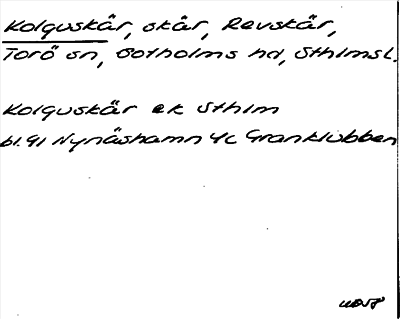 Kolguskär, skär, Revskär,
Torö sn, Sotholms hd, Sthlms l.
Kolguskär ek Sthlm
bl. 91 Nynäshamn 4c Granklubben